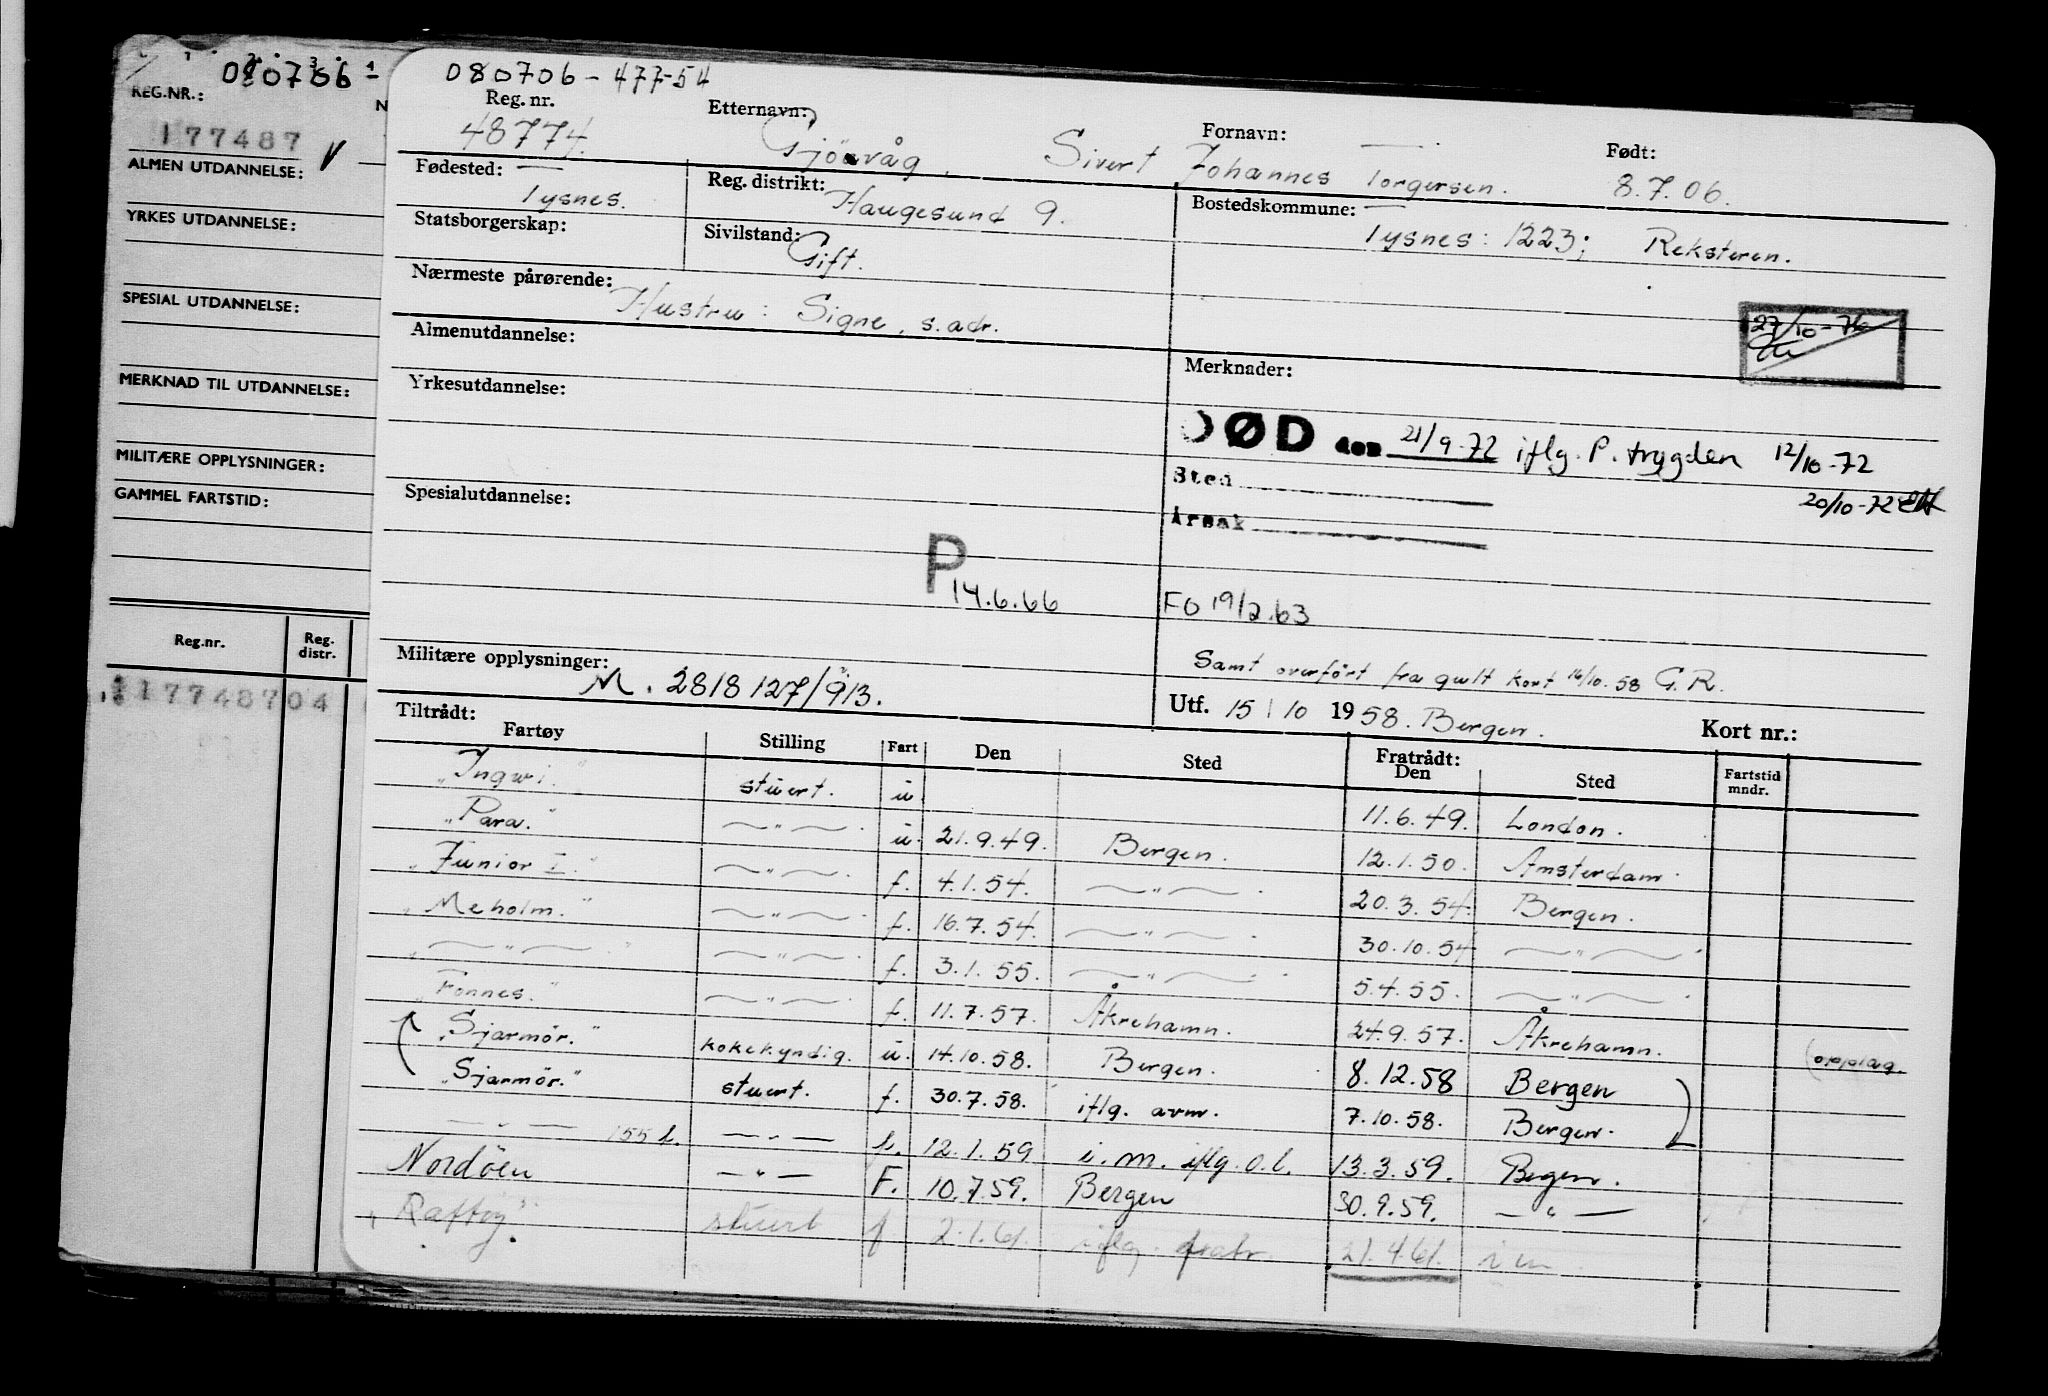 080706-
REG.NR.:
177487
ALMEN UTDANNELSE:
YRKES UTDANNELSE:
SPESIAL UTDANNELSE:
MERKNAD TIL UTDANNELSE:
MILITÆRE OPPLYSNINGER:
GAMMEL FARTSTID:
Reg.nr. Reg. distr.
117748704
080706-477-54
Reg. nr. Etternavn: Fornavn: Født:
48774. Gjøvåg, Sivert Johannes Torgersen. 8.7.06.
Fødested: Reg. distrikt: Bostedskommune:
Tysnes. Haugesund 9. Tysnes: 1223; Reksteren.
Statsborgerskap: Sivilstand:
Gift.
Nærmeste pårørende:
Hustru: Signe, s. adr.
27/10-76
Almenutdannelse: Merknader:
Yrkesutdannelse:
DØD den 21/9-72 iflg. P. trygden 12/10-72
Sted 20/10-72
Spesialutdannelse: Årsak
P
14.6.66 FO 19/2.63
Samt overført fra gult kort 16/10.58 G.R.
Militære opplysninger:
M. 2818127/913.
Utf. 15/10 1958. Bergen. Kort nr.:
Tiltrådt: Fratrådt:
Fartøy Stilling Fart Den Sted Den Sted Fartstid mndr.
"Ingwi." stuert. u. 11.6.49. London.
"Para." —"— u. 21.9.49. Bergen. 12.1.50. Amsterdam.
"Junior I." —"— f. 4.1.54. —"— 20.3.54. Bergen.
"Meholm." —"— f. 16.7.54. —"— 30.10.54 —"—
"—"—" —"— f. 3.1.55. —"— 5.4.55. —"—
"Fonnes." —"— f. 11.7.57. Åkrehamn. 24.9.57. Åkrehamn. (opplag.
"Sjarmør." kokekyndig. u. 14.10.58. Bergen. 8.12.58 Bergen
"Sjarmør." stuert. f. 30.7.58. iflg. avm. 7.10.58. Bergen.
—"— 155 l. —"— l. 12.1.59 i.m. iflg. o.l. 13.3.59. Begen.
Nordöen —"— F. 10.7.59. Bergen 30.9.59. —"—
"Raftöy". stuert f 2.1.61. iflg. fratr. 21.4.61. i m